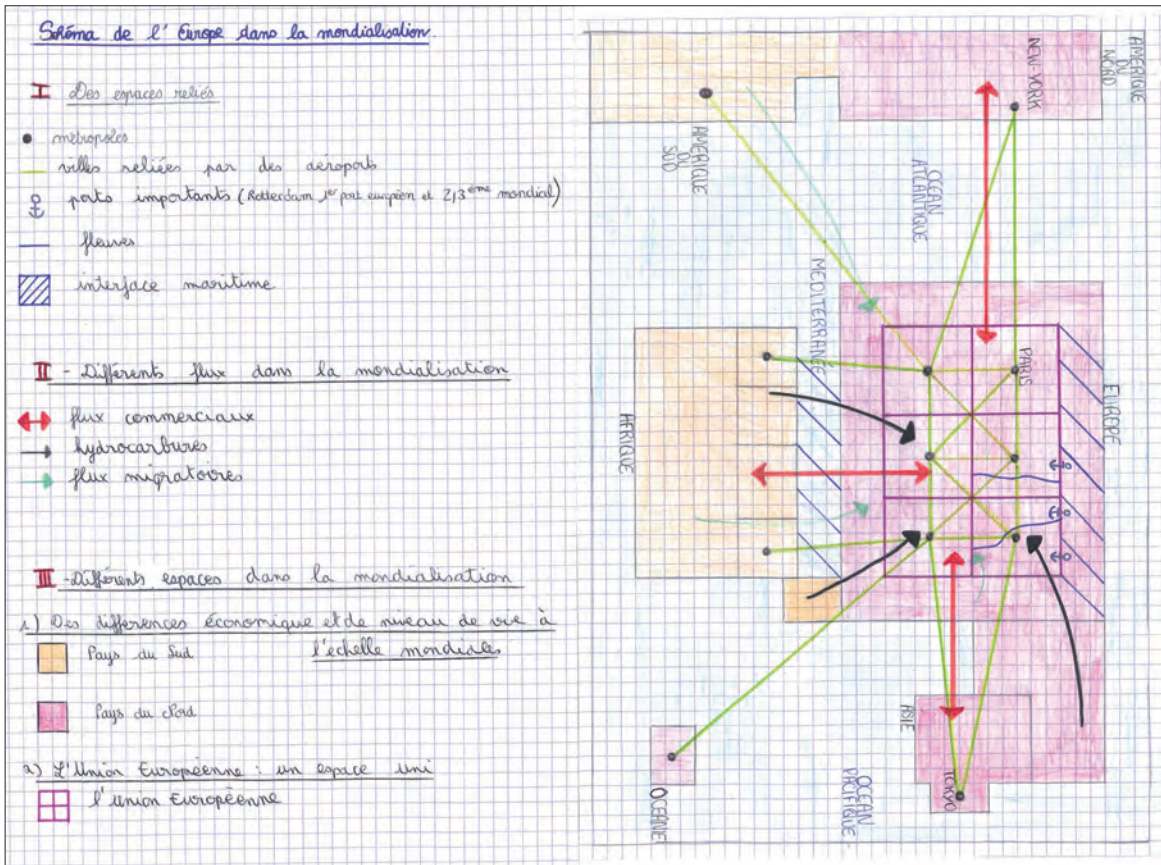 Schéma de l'Europe dans la mondialisation.
I Des espaces reliés
métropoles
villes reliées par des aéroports
ports importants (Rotterdam 1er port européen et 2/3ème mondial)
fleuves
interface maritime
II - Différents flux dans la mondialisation
flux commerciaux
hydrocarbures
flux migratoires
III - Différents espaces dans la mondialisation
1) Des différences économique et de niveau de vie à
l'échelle mondiales
Pays du Sud
Pays du Nord
2) L'Union Européenne : un espace uni
l'union Européenne
AMERIQUE
DU
NORD
NEW-YORK
AMERIQUE
DU
SUD
OCEAN
ATLANTIQUE
MEDITERRANÉE
PARIS
EUROPE
AFRIQUE
ASIE
TOKYO
OCEAN
PACIFIQUE
OCEANIE